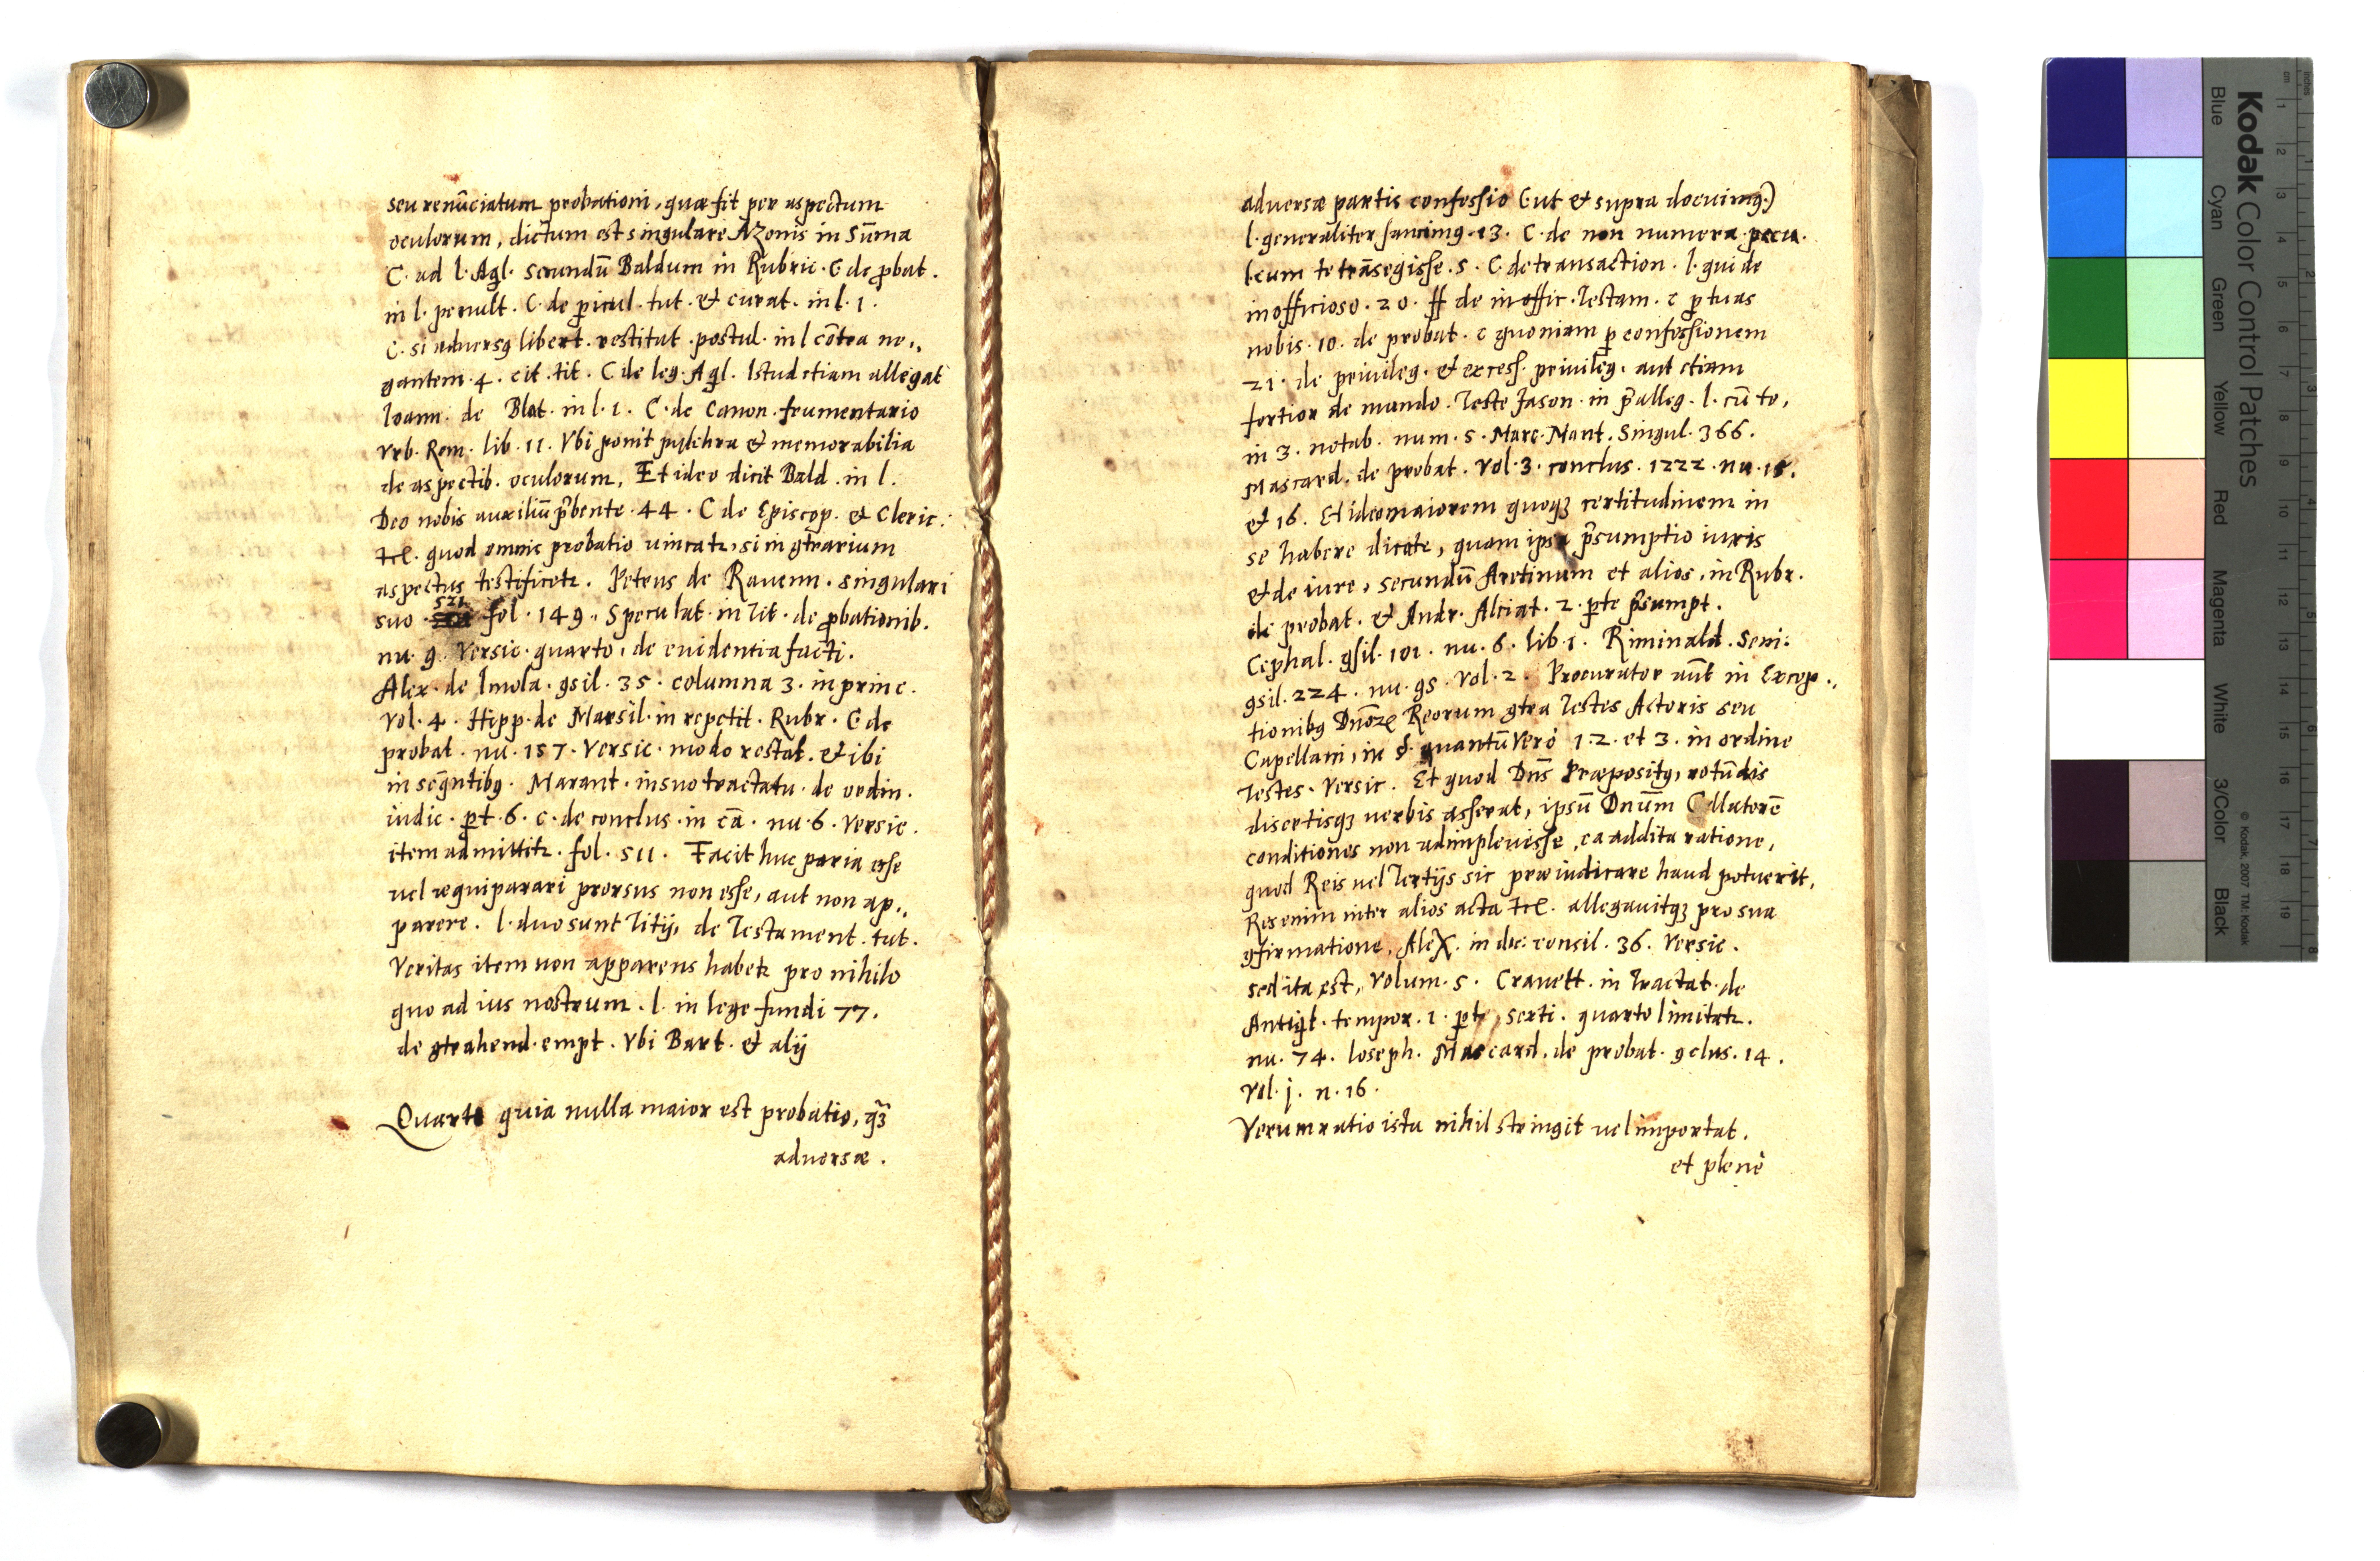 seu renūciatum probationi, quæ fit per aspectum
oculorum, dictum est singulare Azonis in Sūma
C. ad l. Aql. secundū Baldum in Rubric. C de ꝓbat.
in l. penult. C. de ꝑicul. tut. et curat. in l. 1.
C. si adversꝰ libert. restitut. postul. in l cōtra ne,,
gantem. 4. cit. tit. C de leg. Aql. Istud etiam allegat
Ioann. de Blat. in l. 1. C. de Canon. frumentario
vrb. Rom. lib. 11. Vbi ponit pulchra et memorabilia
de aspectib. oculorum, Et ideo dicit Bald. in l.
Deo nobis auxiliū p̄bente. 44. C de Episcop. et Cleric.
quod omnis probatio vincatr, si in ꝯtrarium
aspectus testificetr. Petrus de Rauenn. singulari
suo 521. fol. 149. Speculat. in Tit. de ꝓbationib.
nu. 9. Versic. quarto, de euidentia facti.
Alex. de Imola. ꝯsil. 35. columna 3. in princ.
Vol. 4. Hipp. de Marsil. in repetit. Rubr. C de
probat. nu. 157. Versic. modo restat. et ibi
in seq̄ntibꝰ. Marant. in suo tractatu de ordin.
iudic. ꝑt. 6. c. de conclus. in cā. nu. 6. Versic.
item admittitr. fol. 511. Facit huc paria esse
uel æquiparari prorsus non esse, aut non ap,,
parere. l. duo sunt Titij, de Testament. tut.
Veritas item non apparens habetr pro nihilo
quo ad ius nostrum. l. in lege fundi 77.
de ꝯtrahend. empt. Vbi Bart. et alij
Quarto quia nulla maior est probatio, qꝫ̄
adversæ.
adversæ partis confessio (ut et supra docuimꝰ)
l. generaliter sancimꝰ. 13. C. de non numera. pecu.
l. cum te trāsegisse. 5. C. de transaction. l. qui de
inofficioso. 20. ff de inoffic. Testam. c ꝑ tuas
nobis. 10. de probat. c quoniam ꝑ confessionem
21. de privileg. et excess. privileg. aut etiam
fortior de mundo. Teste Jason. in p̄alleg. l. cū te,
in 3. notab. num. 5. Marc. Mant. Singul. 366.
Mascard. de probat. Vol. 3. conclus. 1222. nu. 15.
et 16. Et ideo maiorem quoqꝫ certitudinem in
se habere dicatr, quam ipsa p̄sumptio iuris
et de iure, secundū Aretinum et alios, in Rubr.
de probat. et Andr. Alciat. 2. ꝑte p̄sumpt.
Cephal. ꝯsil. 101. nu. 6. lib. 1. Riminald. Seni.
ꝯsil. 224. nu. 95. Vol. 2. Procurator aūt in Excep,,
tionibꝰ Dnōrꝝ Reorum ꝯtra Testes Actoris seu
Capellani, in §. quantū Vero 1. 2. et 3. in ordine
Testes. Versic. Et quod Dnīs Præpositꝰ, rotūdis
disertisqꝫ verbis asserat, ipsū Dnūm Collatorē
conditiones non adimplevisse, ea addita ratione,
quod Reis uel Tertijs sic præiudicare haud potuerit,
Res enim inter alios acta allegauitqꝫ pro sua
ꝯfirmatione, Alex. in dic: consil. 36. Versic.
sed ita est, Volum. 5. Cravett. in Tractat. de
Antiqt. tempor. 1. ꝑt, secti. quarto limitatr.
nu. 74. Ioseph. Mascard. de probat. ꝯclus. 14.
Vol. j. n. 16.
Verum ratio ista nihil stringit uel importat.
et plenè
Kodak Color Control Patches
Blue Cyan Green Yellow Red Magenta White 3/Color Black
© Kodak, 2007 TM: Kodak
cm 1 2 3 4 5 6 7 8 9 10 11 12 13 14 15 16 17 18 19
inches 1 2 3 4 5 6 7 8